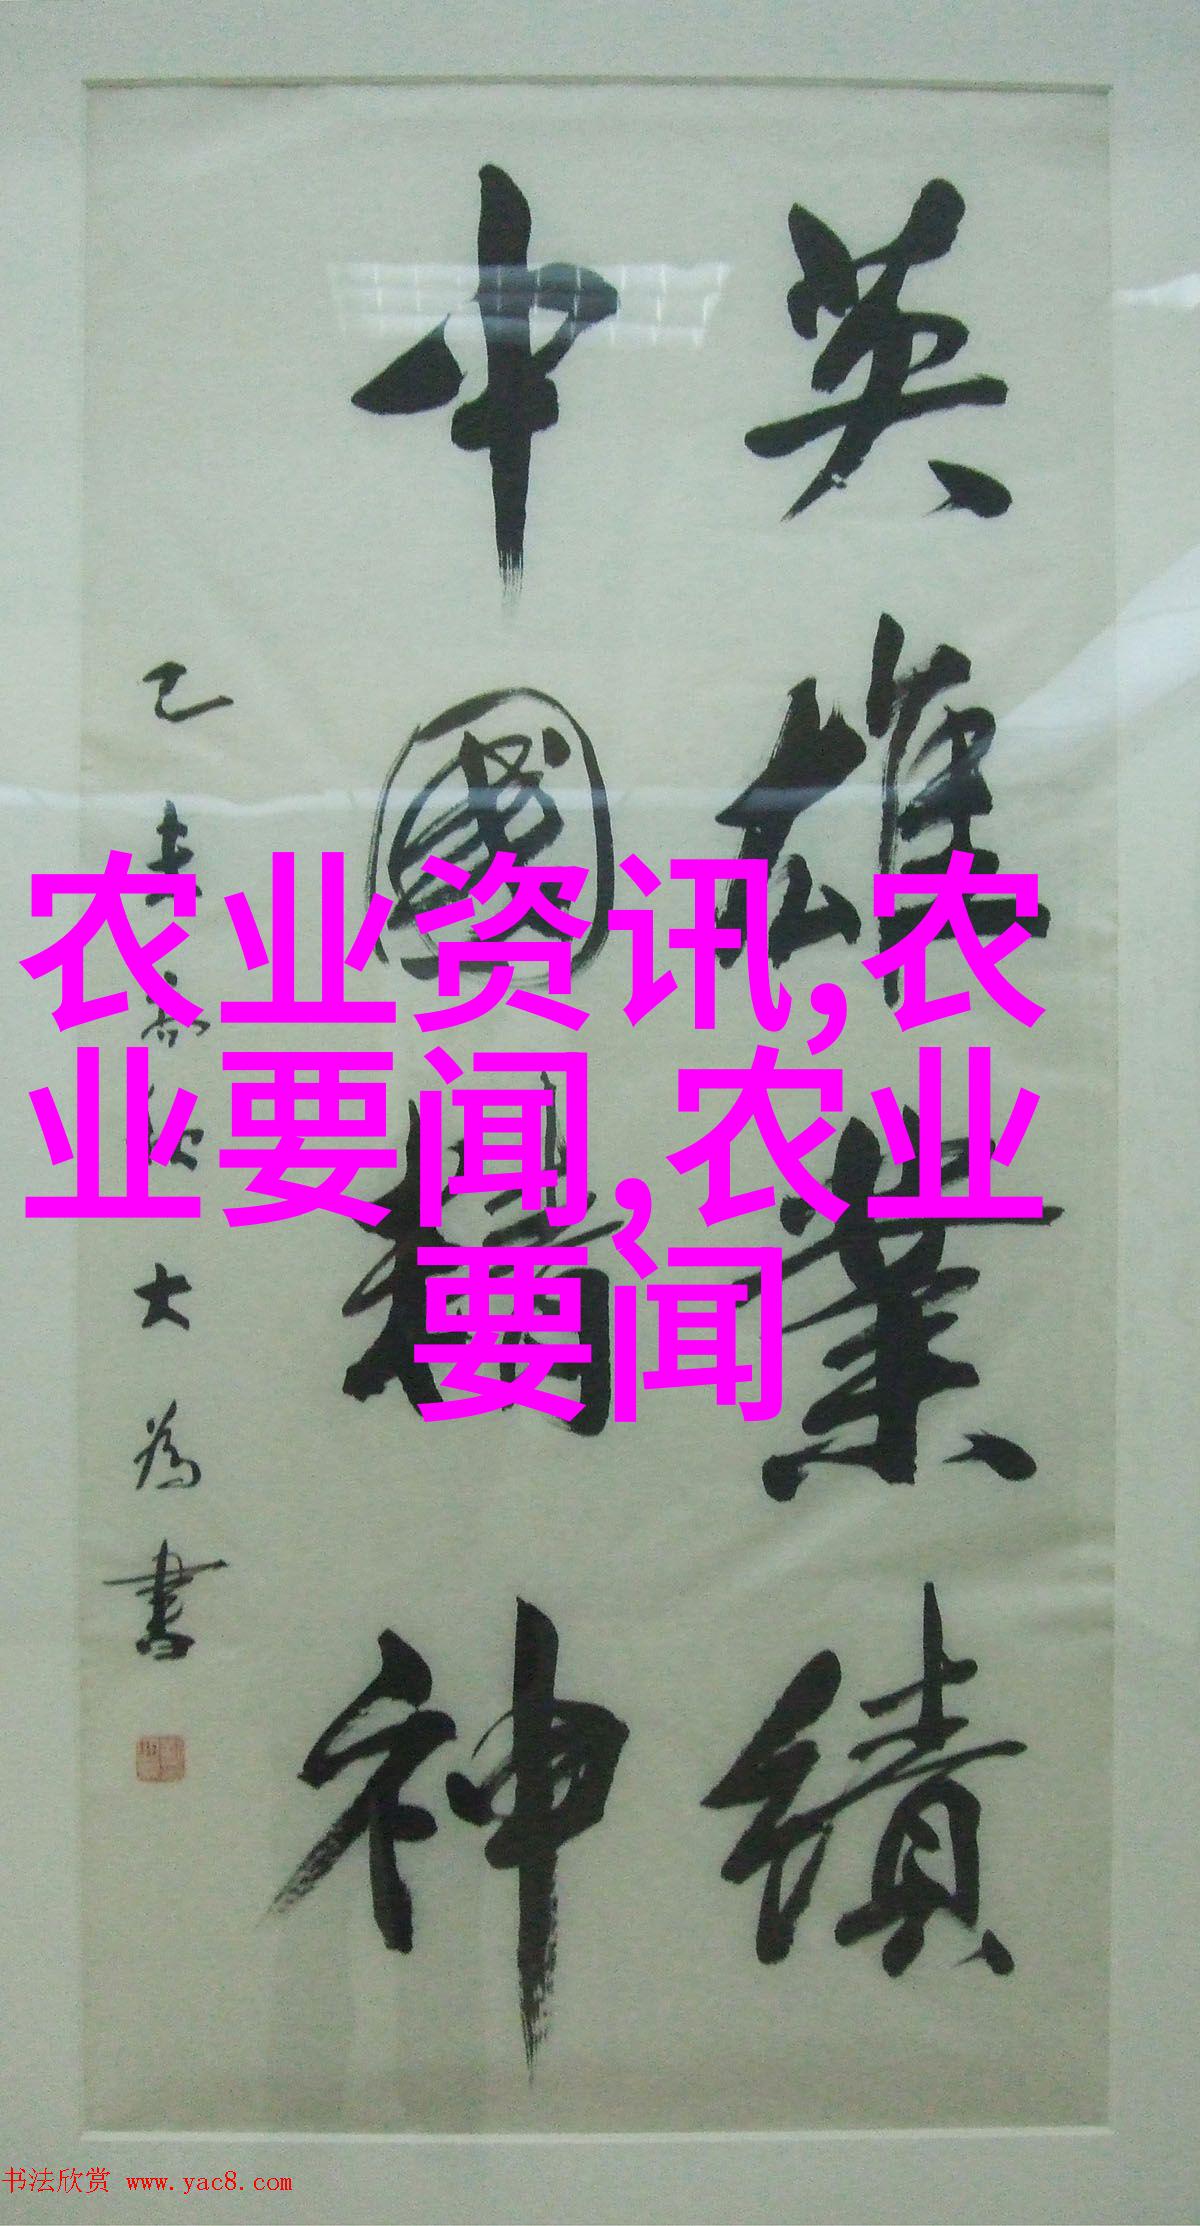 英雄業績
中國精神
大為書
农业资讯,农
业要闻,农业
要闻
书法欣赏 www.yac8.com